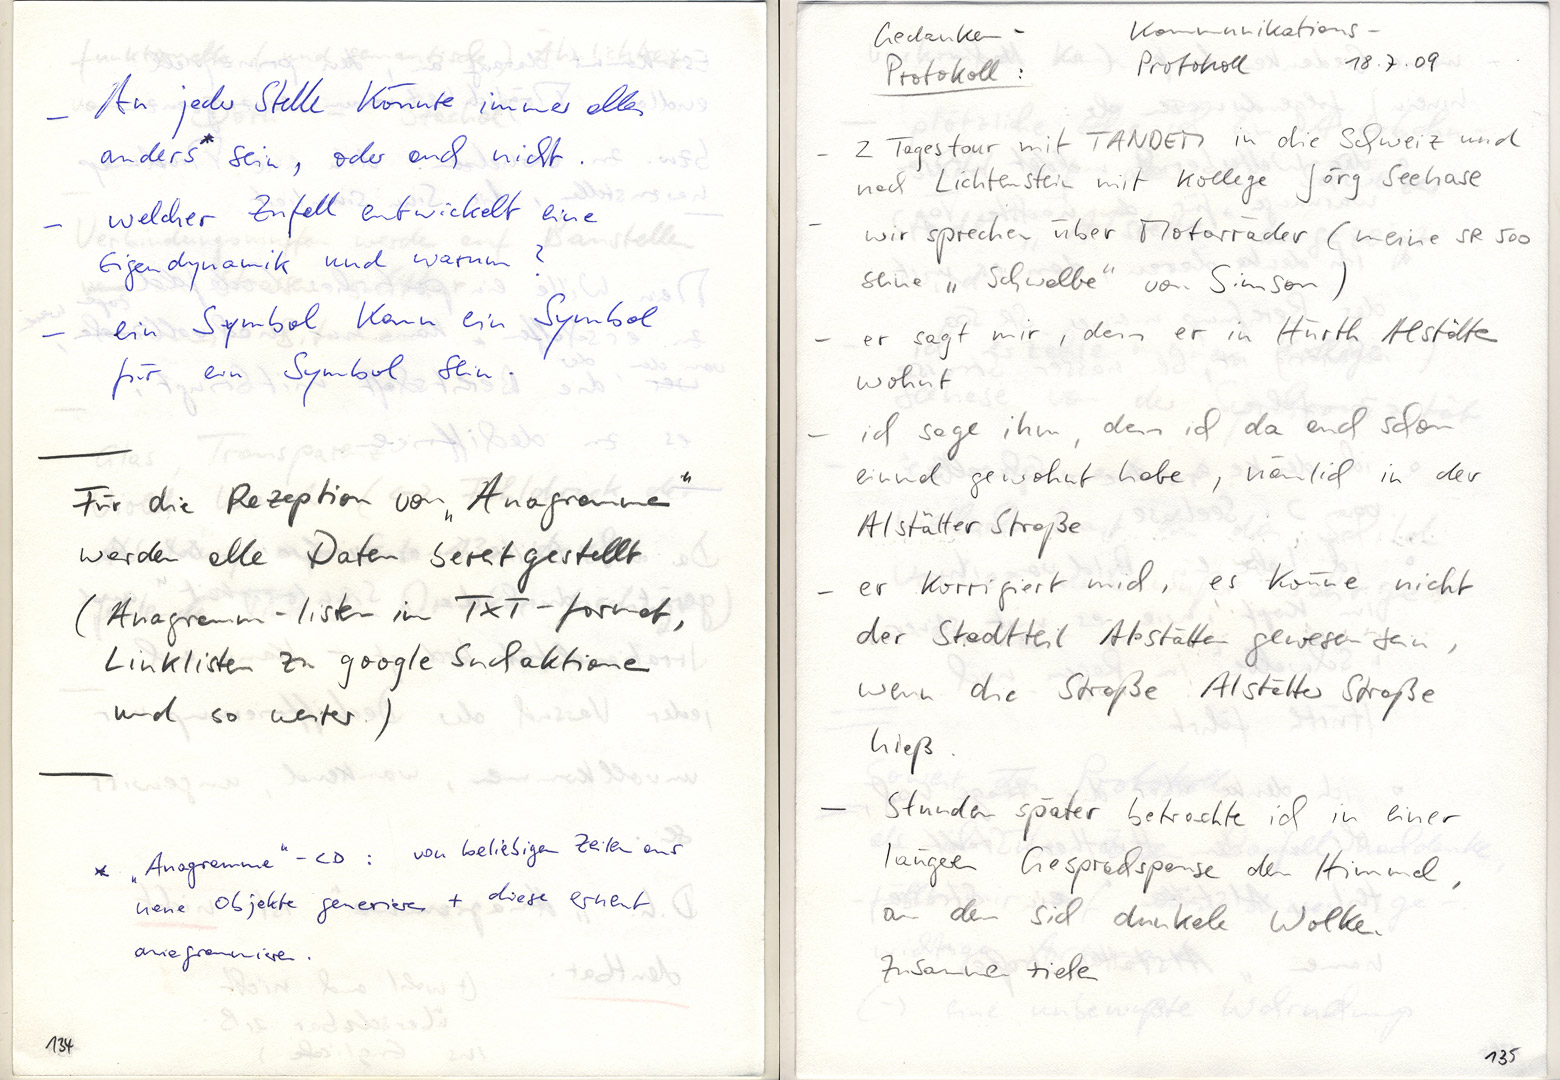 – An jeder Stelle könnte immer alles
anders* sein, oder auch nicht.
– welcher Zufall entwickelt eine
Eigendynamik und warum?
– ein Symbol kann ein Symbol
für ein Symbol sein.
Für die Rezeption von „Anagramme“
werden alle Daten bereitgestellt
(Anagramm-listen im TXT-format,
Linklisten zu google Suchaktionen
und so weiter.)
* „Anagramme“-CD: von beliebigen Zeilen aus
neue Objekte generieren + diese erneut
anagrammieren.
134
Gedanken- Kommunikations-
Protokoll: Protokoll 18.7.09
– 2 Tagestour mit TANDEM in die Schweiz und
nach Lichtenstein mit Kollege Jörg Seehase
– wir sprechen über Motorräder (meine SR 500
seine „Schwalbe“ von Simson)
– er sagt mir, dass er in Hürth Alstätten
wohnt
– ich sage ihm, dass ich da auch schon
einmal gewohnt habe, nämlich in der
Alstätter Straße
– er korrigiert mich, es könne nicht
der Stadtteil Alstätten gewesen sein,
wenn die Straße Alstätter Straße
hieß.
– Stunden später betrachte ich in einer
langen Gesprächspause den Himmel,
an dem sich dunkele Wolken
zusammenziehen
135